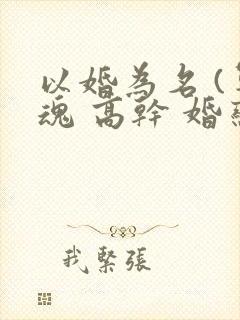 以婚為名(
魂 高幹 婚
我緊張